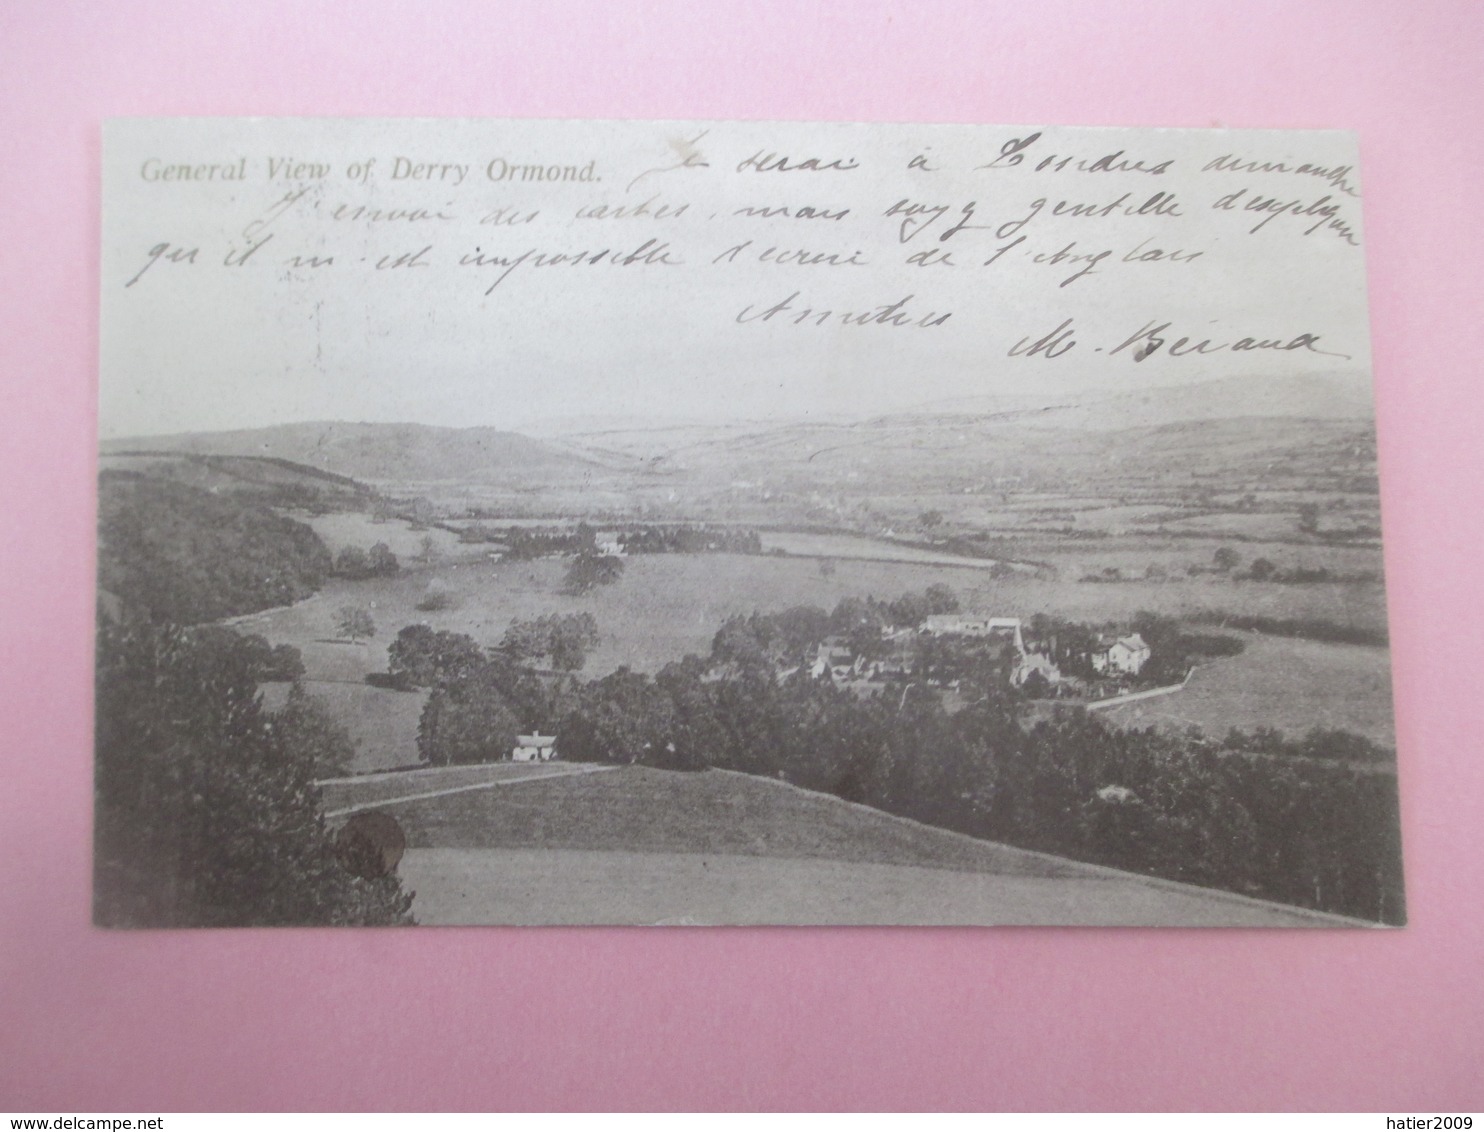 General View of Derry Ormond.
Je serai à Londres dimanche
J'envoi des cartes, mais soyez gentille d'expliquer
qu'il m'est impossible d'ecrire de l'Anglais
Amitiés
M. Béraud
www.delcampe.net
hatier2009